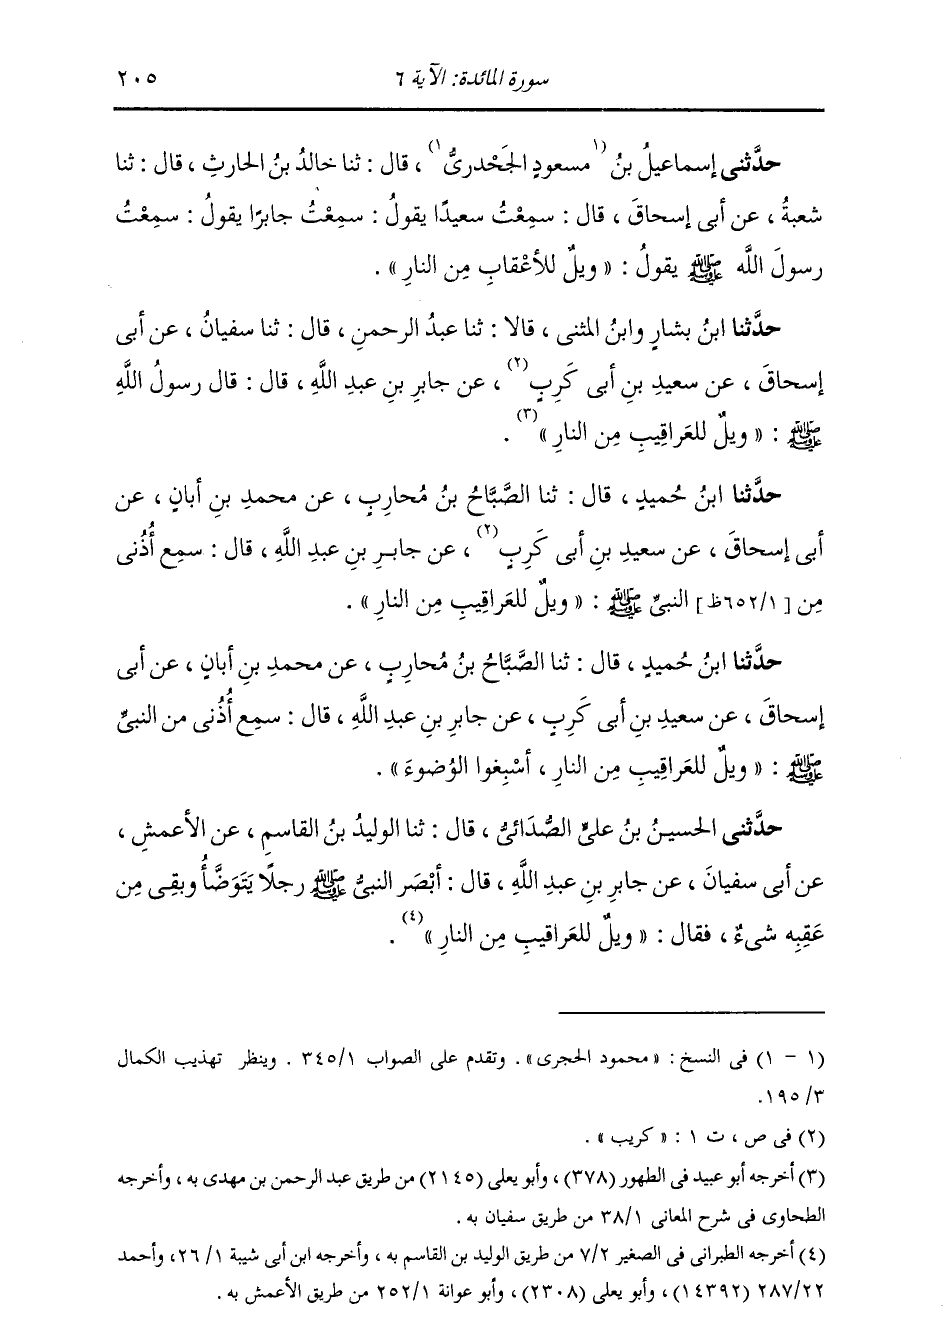 سورة المائدة: الآية ٦
٢٠٥
حدَّثنى إسماعيلُ بنُ (١مسعودٍ الجَحْدرىُّ١) ، قال : ثنا خالدُ بنُ الحارثِ ، قال : ثنا
شعبةُ ، عن أبى إسحاقَ ، قال : سمِعْتُ سعيدًا يقولُ : سمِعْتُ جابرًا يقولُ : سمِعْتُ
رسولَ اللَّه ﷺ يقولُ : « ويلٌ للأعْقابِ مِن النارِ » .
حدَّثنا ابنُ بشارٍ وابنُ المثنى ، قالا : ثنا عبدُ الرحمنِ ، قال : ثنا سفيانُ ، عن أبى
إسحاقَ ، عن سعيدِ بنِ أبى كَرِبٍ(٢) ، عن جابرِ بنِ عبدِ اللَّهِ ، قال : قال رسولُ اللَّهِ
ﷺ : « ويلٌ للعَراقِيبِ مِن النارِ »(٣) .
حدَّثنا ابنُ حُميدٍ ، قال : ثنا الصَّبَّاحُ بنُ مُحاربٍ ، عن محمدِ بنِ أبانٍ ، عن
أبى إسحاقَ ، عن سعيدِ بنِ أبى كَرِبٍ(٢) ، عن جابرِ بنِ عبدِ اللَّهِ ، قال : سمِع أُذُنى
مِن [ ٦٥٢/١ظ ] النبىِّ ﷺ : « ويلٌ للعَراقِيبِ مِن النارِ » .
حدَّثنا ابنُ حُميدٍ ، قال : ثنا الصَّبَّاحُ بنُ مُحاربٍ ، عن محمدِ بنِ أبانٍ ، عن أبى
إسحاقَ ، عن سعيدِ بنِ أبى كَرِبٍ ، عن جابرِ بنِ عبدِ اللَّهِ ، قال : سمِع أُذُنى من النبىِّ
ﷺ : « ويلٌ للعَراقِيبِ مِن النارِ ، أسْبِغوا الوُضوءَ » .
حدَّثنى الحسينُ بنُ علىٍّ الصُّدَائىُّ ، قال : ثنا الوليدُ بنُ القاسمِ ، عن الأعمشِ ،
عن أبى سفيانَ ، عن جابرِ بنِ عبدِ اللَّهِ ، قال : أبْصَر النبىُّ ﷺ رجلًا يَتَوَضَّأُ وبقِى مِن
عَقِبِه شىءٌ ، فقال : « ويلٌ للعَراقيبِ مِن النارِ »(٤) .
(١ - ١) فى النسخ : « محمود الحجرى » . وتقدم على الصواب ٣٤٥/١ . وينظر تهذيب الكمال
٣/ ١٩٥.
(٢) فى ص ، ت ١ : « كريب » .
(٣) أخرجه أبو عبيد فى الطهور (٣٧٨) ، وأبو يعلى (٢١٤٥) من طريق عبد الرحمن بن مهدى به ، وأخرجه
الطحاوى فى شرح المعانى ٣٨/١ من طريق سفيان به .
(٤) أخرجه الطبرانى فى الصغير ٧/٢ من طريق الوليد بن القاسم به ، وأخرجه ابن أبى شيبة ١/ ٢٦، وأحمد
٢٨٧/٢٢ (١٤٣٩٢) ، وأبو يعلى (٢٣٠٨) ، وأبو عوانة ٢٥٢/١ من طريق الأعمش به .